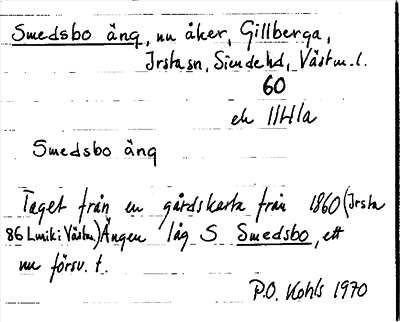 Smedsbo äng, nu åker, Gillberga,
Irsta sn, Siende hd, Västm. l.
60
ek 11H1a
Smedsbo äng
Taget från en gårdskarta från 1860 (Irsta
86 Lmk i Västm.) Ängen låg S Smedsbo, ett
nu försv. t.
P.O. Kohls 1970